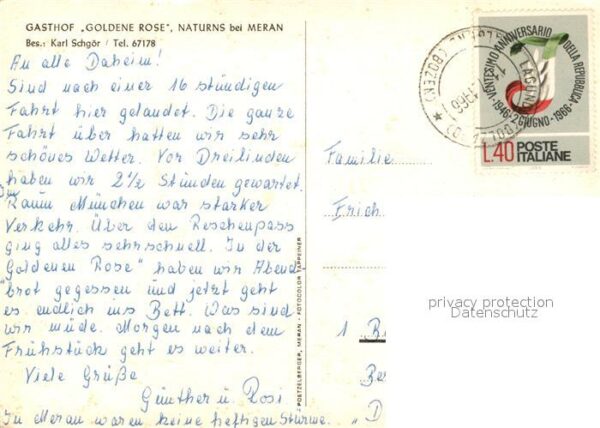 GASTHOF „GOLDENE ROSE", NATURNS bei MERAN
Bes.: Karl Schgör / Tel. 67178
An alle Daheim!
Sind nach einer 16 stündigen
Fahrt hier gelandet. Die ganze
Fahrt über hatten wir sehr
schönes Wetter. Vor Dreilinden
haben wir 2½ Stunden gewartet.
Im Raum München war starker
Verkehr. Über den Reschenpass
ging alles sehr schnell. In der
„Goldenen Rose" haben wir Abend
brot gegessen und jetzt geht
es endlich ins Bett. Was sind
wir müde. Morgen nach dem
Frühstück geht es weiter.
Viele Grüße
Günther u. Rosi
In Meran waren keine heftigen Stürme. "
J. POETZELBERGER, MERAN - FOTOCOLOR TAPPEINER
Familie
Erich
1 B
Be
"D
LAGUNDO
(BOLZANO)
(BOZEN)
VENTESIMO ANNIVERSARIO DELLA REPUBBLICA
1946 · 2 GIUGNO · 1966
L.40 POSTE
ITALIANE
privacy protection
Datenschutz